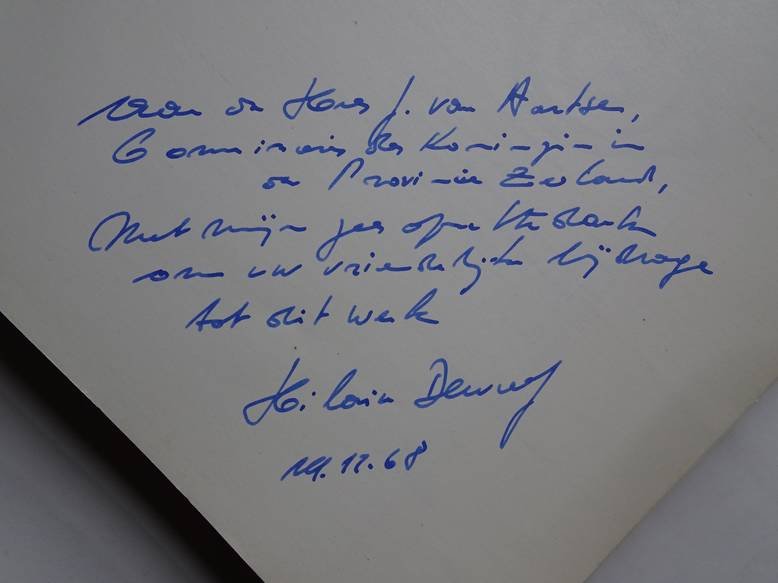 Aan de Heer J. van Aartsen,
Commissaris der Koningin in
de Provincie Zeeland,
Met mijn
om uw vriendelijke bijdrage
tot dit werk
Hilaire
12.68